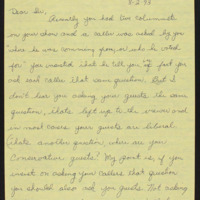 8-2-93
Dear Sir,
Recently you had two columnists
in your show and a caller was asked by you
"who he was commenting from, or who he voted
for" you insisted that he tell you. If fact you
not said callers that same question. But I
don't hear you asking your guests the same
question, thats left up to the viewer and
in most cases your guests are liberal.
Thats another question, where are your
Conservative guests? My point is, if you
insist on asking your callers that question
you should also ask your guests. Not asking